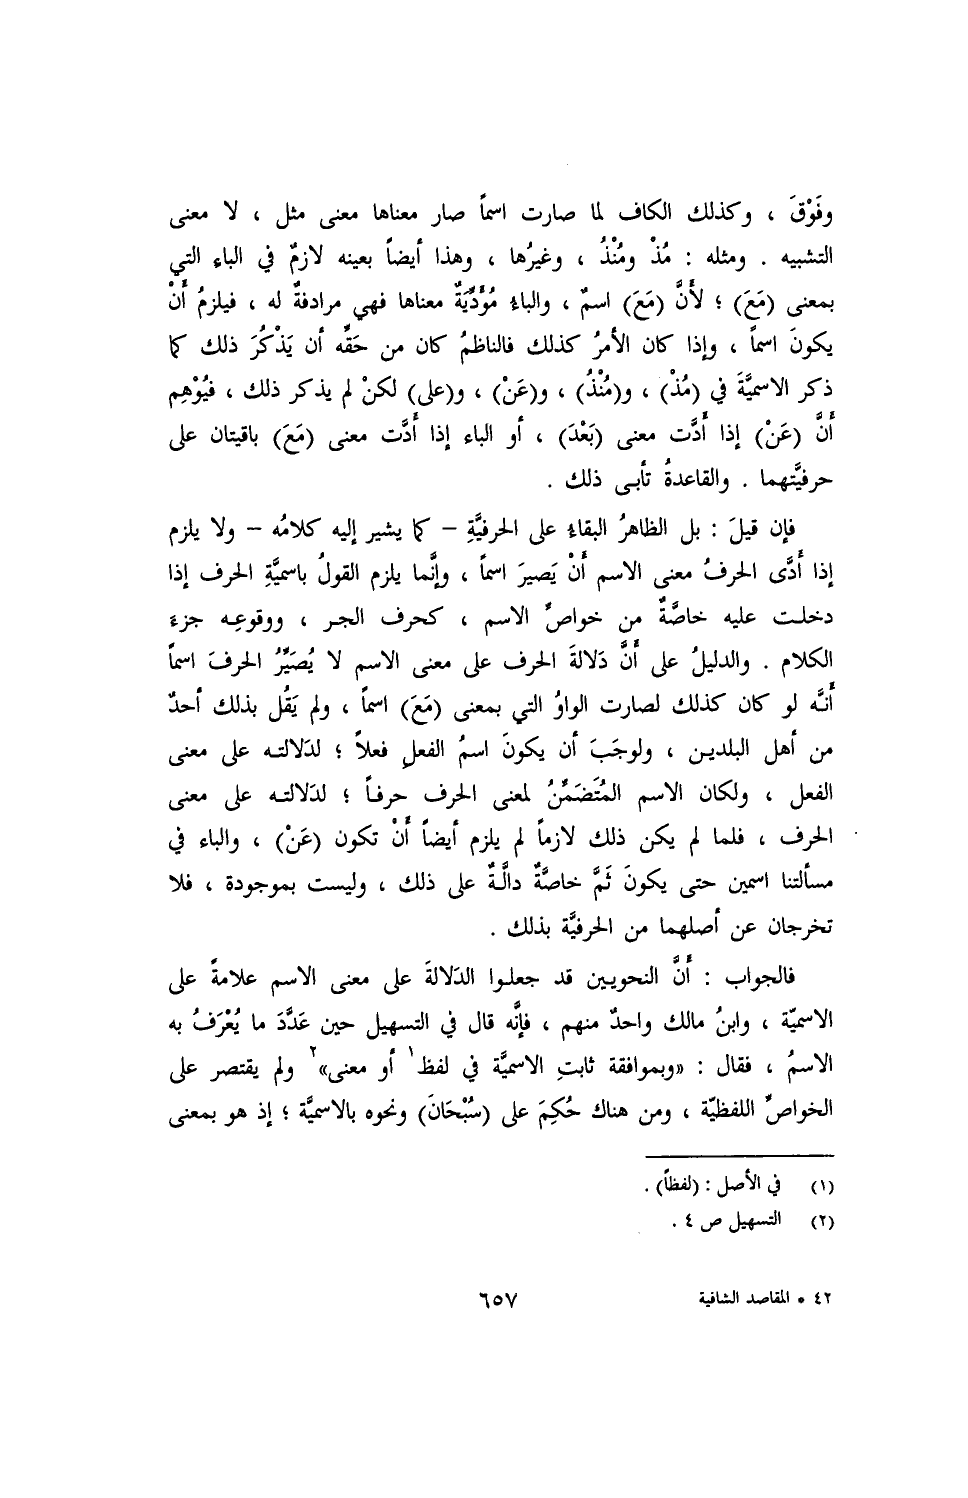 وفَوْقَ ، وكذلك الكاف لما صارت اسماً صار معناها معنى مثل ، لا معنى
التشبيه . ومثله : مُذْ ومُنْذُ ، وغيرُها ، وهذا أيضاً بعينه لازمٌ في الباء التي
بمعنى (مَعَ) ؛ لأَنَّ (مَعَ) اسمٌ ، والباءُ مُؤَدِّيَةٌ معناها فهي مرادفةٌ له ، فيلزمُ أَنْ
يكونَ اسماً ، وإذا كان الأمرُ كذلك فالناظمُ كان من حَقِّه أن يَذْكُرَ ذلك كما
ذكر الاسميَّةَ في (مُذْ) ، و(مُنْذُ) ، و(عَنْ) ، و(على) لكنْ لم يذكر ذلك ، فيُوْهِم
أَنَّ (عَنْ) إذا أَدَّت معنى (بَعْدَ) ، أو الباء إذا أَدَّت معنى (مَعَ) باقيتان على
حرفيَّتهما . والقاعدةُ تأبى ذلك .
فإن قيلَ : بل الظاهرُ البقاءُ على الحرفيَّةِ – كما يشير إليه كلامُه – ولا يلزم
إذا أَدَّى الحرفُ معنى الاسم أَنْ يَصيرَ اسماً ، وإنَّما يلزم القولُ باسميَّةِ الحرف إذا
دخلت عليه خاصَّةٌ من خواصِّ الاسم ، كحرف الجر ، ووقوعِه جزءَ
الكلام . والدليلُ على أَنَّ دَلالةَ الحرف على معنى الاسم لا يُصَيِّرُ الحرفَ اسماً
أَنَّه لو كان كذلك لصارت الواوُ التي بمعنى (مَعَ) اسماً ، ولم يَقُل بذلك أحدٌ
من أهل البلدين ، ولوجَبَ أن يكونَ اسمُ الفعلِ فعلاً ؛ لدَلالته على معنى
الفعل ، ولكان الاسم المُتَضَمِّنُ لمعنى الحرف حرفاً ؛ لدَلالته على معنى
الحرف ، فلما لم يكن ذلك لازماً لم يلزم أيضاً أَنْ تكون (عَنْ) ، والباء في
مسألتنا اسمين حتى يكونَ ثَمَّ خاصَّةٌ دالَّةٌ على ذلك ، وليست بموجودة ، فلا
تخرجان عن أصلهما من الحرفيَّة بذلك .
فالجواب : أَنَّ النحويين قد جعلوا الدَلالةَ على معنى الاسم علامةً على
الاسميّة ، وابنُ مالك واحدٌ منهم ، فإنَّه قال في التسهيل حين عَدَّدَ ما يُعْرَفُ به
الاسمُ ، فقال : «وبموافقة ثابتِ الاسميَّة في لفظ١ أو معنى»٢ ولم يقتصر على
الخواصِّ اللفظيّة ، ومن هناك حُكِمَ على (سُبْحَانَ) ونحوه بالاسميَّة ؛ إذ هو بمعنى
(١) في الأصل : (لفظاً) .
(٢) التسهيل ص ٤ .
٤٢ • المقاصد الشافية
٦٥٧